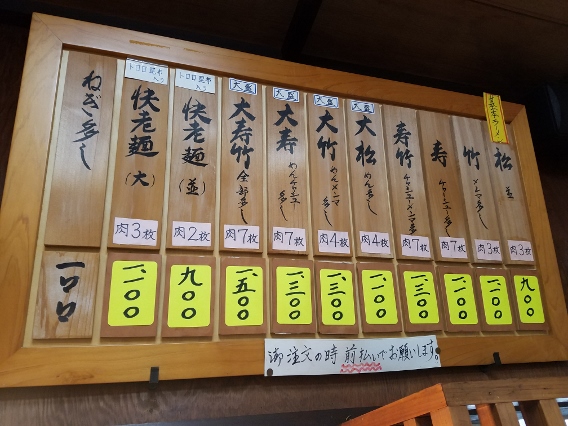 松 並
肉3枚
九〇〇
竹 メンマ多し
肉3枚
一、一〇〇
寿 チャーシュー多し
肉7枚
一、一〇〇
寿竹 チャーシューメンマ多し
肉7枚
一、三〇〇
大盛
大松 めん多し
肉4枚
一、一〇〇
大盛
大竹 めんメンマ多し
肉4枚
一、三〇〇
大盛
大寿 めんチャーシュー多し
肉7枚
一、三〇〇
大盛
大寿竹 全部多し
肉7枚
一、五〇〇
トロロ昆布入り
快老麺(並)
肉2枚
九〇〇
トロロ昆布入り
快老麺(大)
肉3枚
一、一〇〇
ねぎ多し
一〇〇
御注文の時 前払いでお願いします。